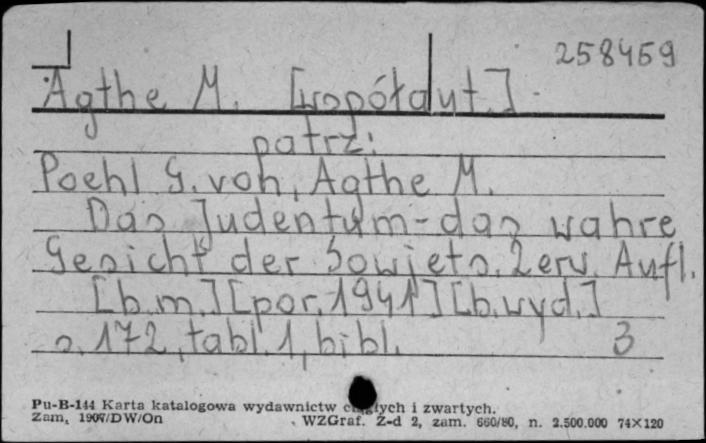 258459
Agthe M. [współaut.]
patrz:
Poehl G. von, Agthe M.
Das Judentum - das wahre
Gesicht der Sowjets. 2 erw. Aufl.
[b.m.] [por. 1941] [b.wyd.]
s. 172, tabl. 1, bibl. 3
Pu-B-144 Karta katalogowa wydawnictw ciągłych i zwartych.
Zam. 1907/DW/On WZGraf. Z-d 2, zam. 660/80, n. 2.500.000 74×120